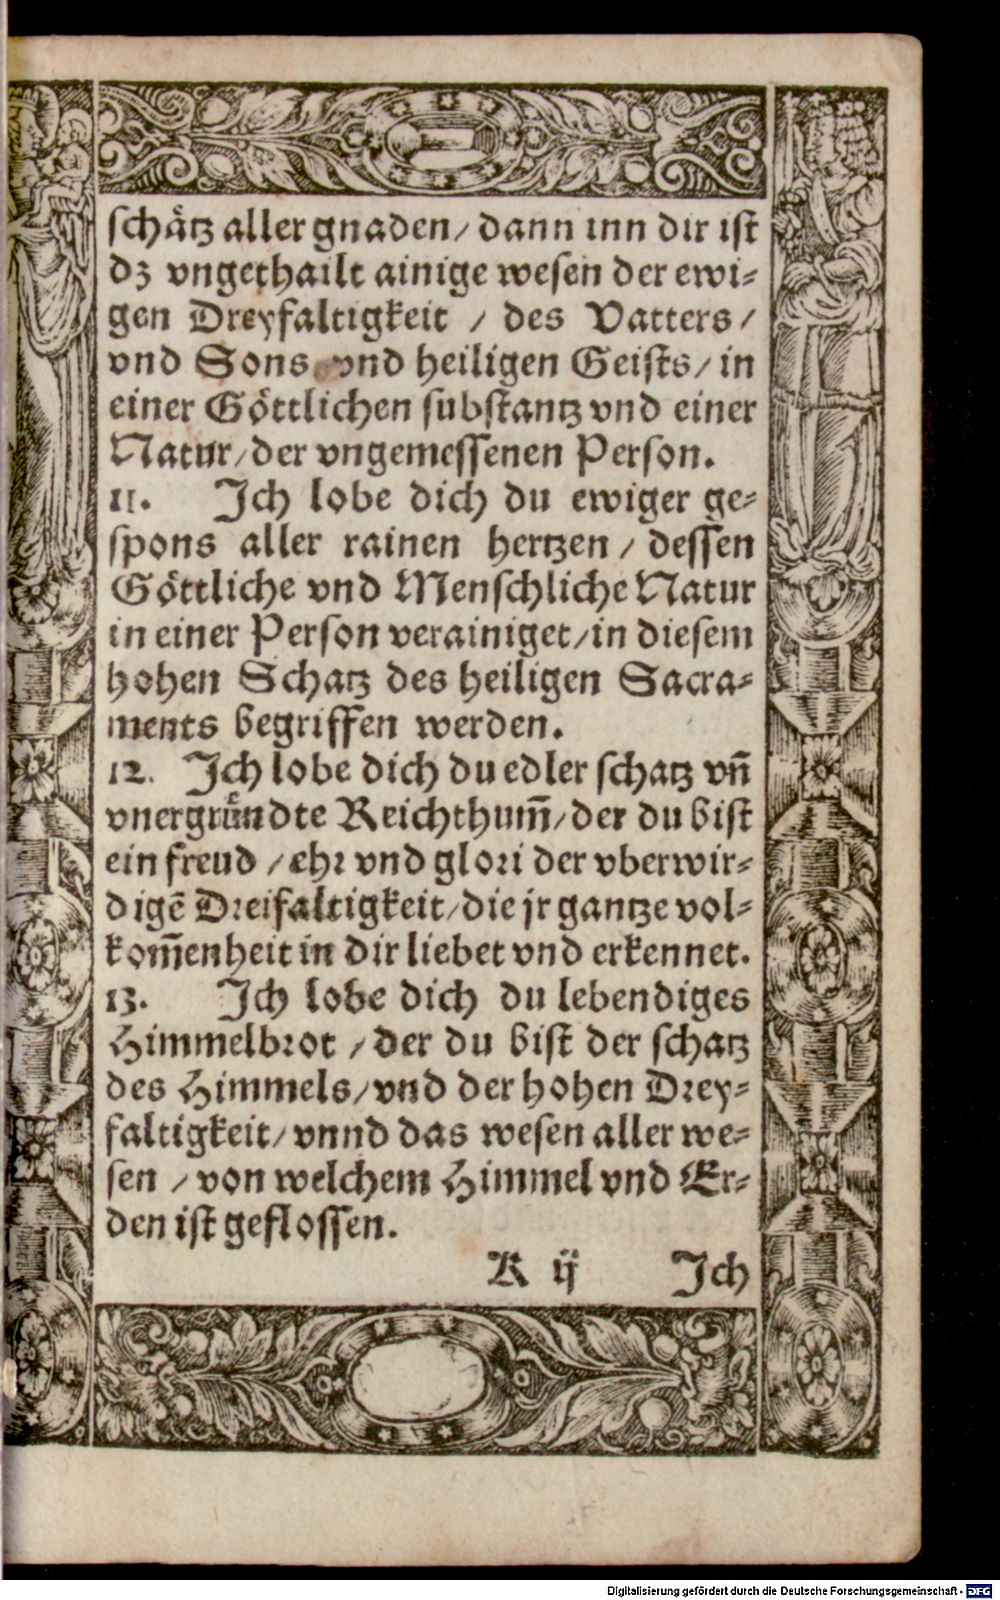 schaͤtz aller gnaden/ dann inn dir ist
dz vngethailt ainige wesen der ewi-
gen Dreyfaltigkeit / des Vatters/
vnd Sons vnd heiligen Geists/ in
einer Goͤttlichen substantz vnd einer
Natur/ der vngemessenen Person.
11. Ich lobe dich du ewiger ge-
spons aller rainen hertzen / dessen
Goͤttliche vnd Menschliche Natur
in einer Person verainiget/ in diesem
hohen Schatz des heiligen Sacra-
ments begriffen werden.
12. Ich lobe dich du edler schatz vñ
vnergruͤndte Reichthum̃/ der du bist
ein freud / ehr vnd glori der vberwir-
digẽ Dreifaltigkeit/ die jr gantze vol-
kom̃enheit in dir liebet vnd erkennet.
13. Ich lobe dich du lebendiges
Himmelbrot / der du bist der schatz
des Himmels/ vnd der hohen Drey-
faltigkeit/ vnnd das wesen aller we-
sen / von welchem Himmel vnd Er-
den ist geflossen.
K ij Ich
Digitalisierung gefördert durch die Deutsche Forschungsgemeinschaft - DFG